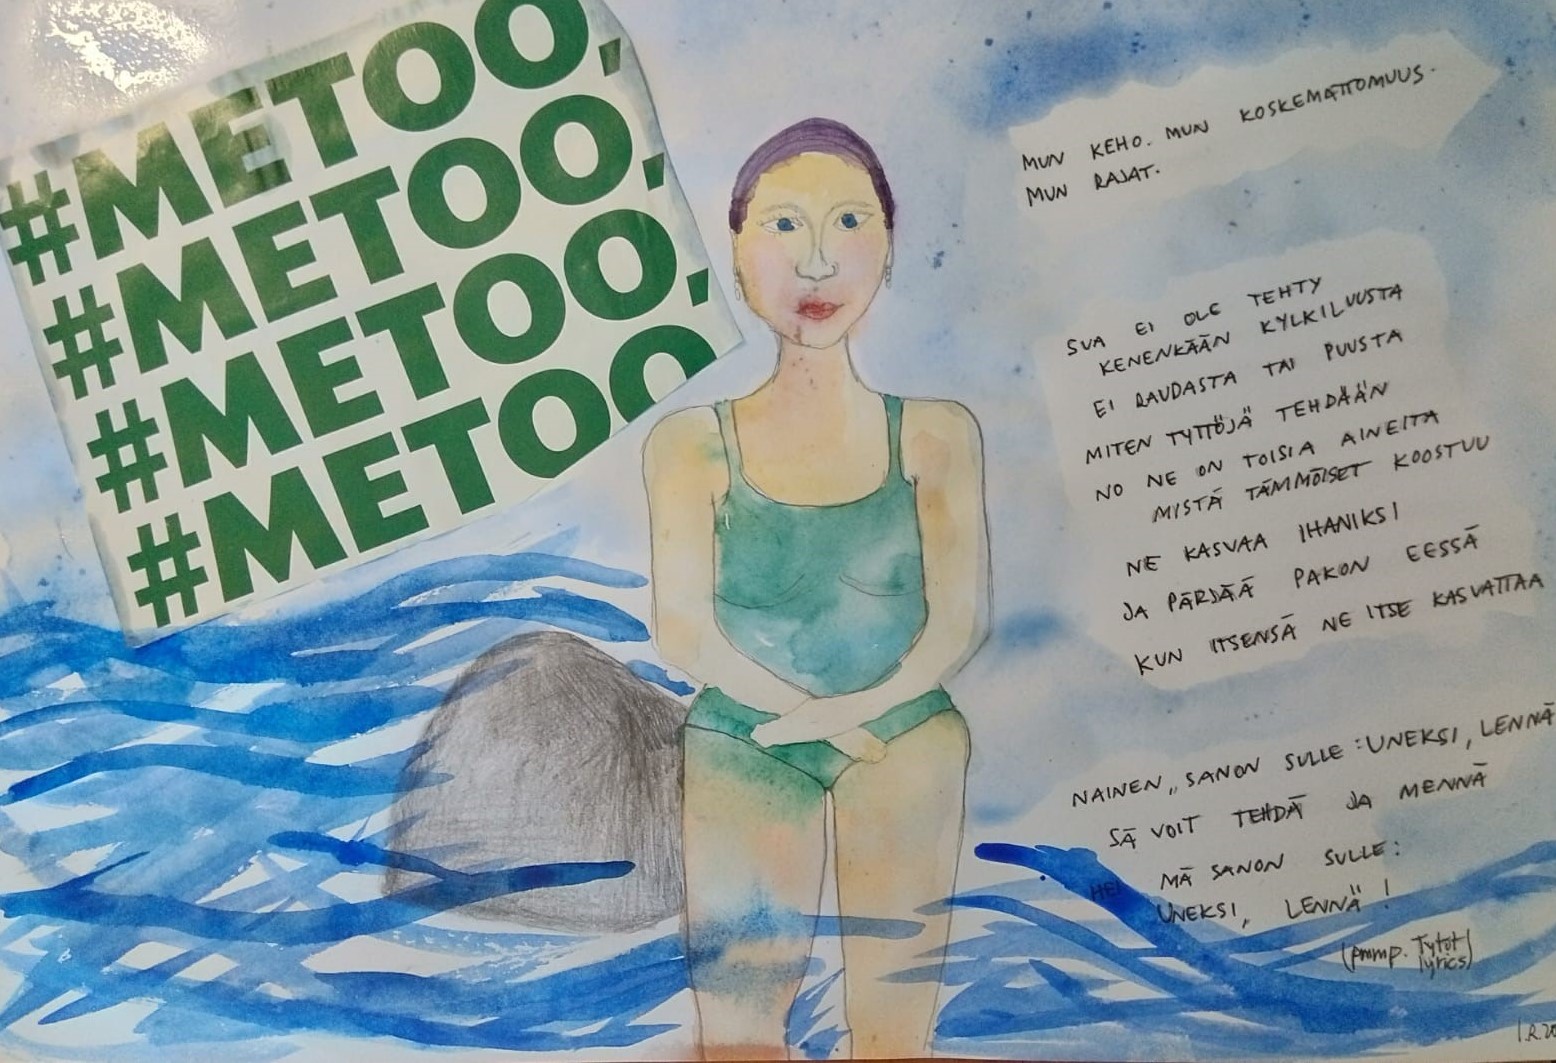 #METOO,
#METOO,
#METOO,
#METOO
MUN KEHO. MUN KOSKEMATTOMUUS.
MUN RAJAT.
SUA EI OLE TEHTY
KENENKÄÄN KYLKILUUSTA
EI RAUDASTA TAI PUUSTA
MITEN TYTTÖJÄ TEHDÄÄN
NO NE ON TOISIA AINEITA
MISTÄ TÄMMÖISET KOOSTUU
NE KASVAA IHANIKSI
JA PÄRJÄÄ PAKON EESSÄ
KUN ITSENSÄ NE ITSE KASVATTAA
NAINEN, SANON SULLE: UNEKSI, LENNÄ
SÄ VOIT TEHDÄ JA MENNÄ
HEI MÄ SANON SULLE:
UNEKSI, LENNÄ!
(pmmp. Tytöt
lyrics)
I.R.20